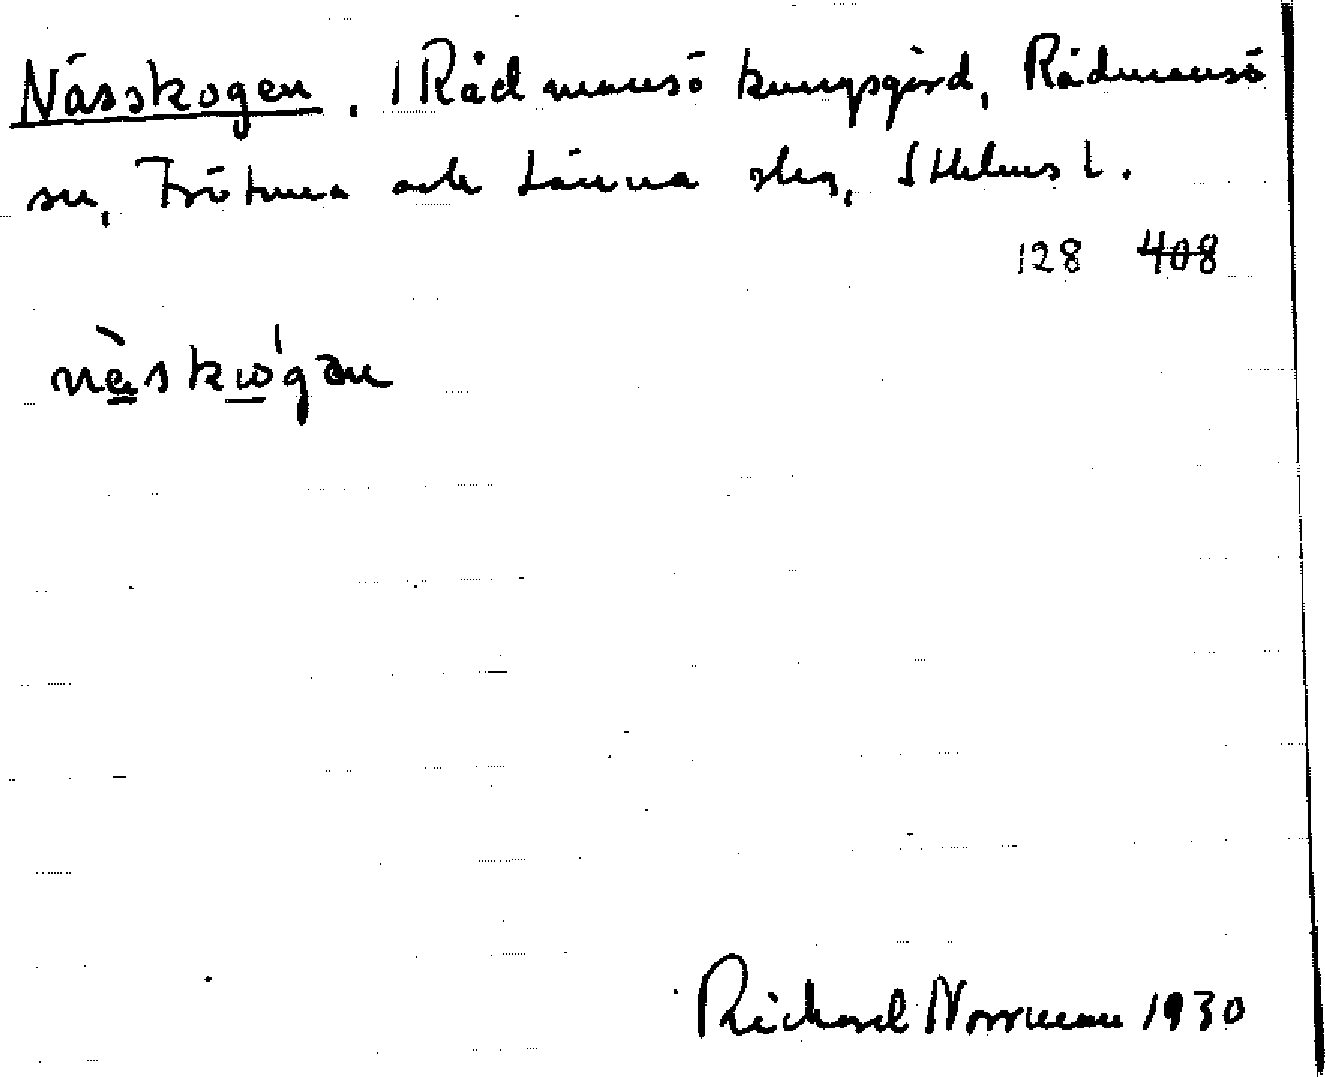 Nässkogen. I Rådmansö kungsgård, Rådmansö
sn, Frötuna och Länna skg, Sthlms l.
128 408
nä̀skώ̲gən
Richard Norrman 1930